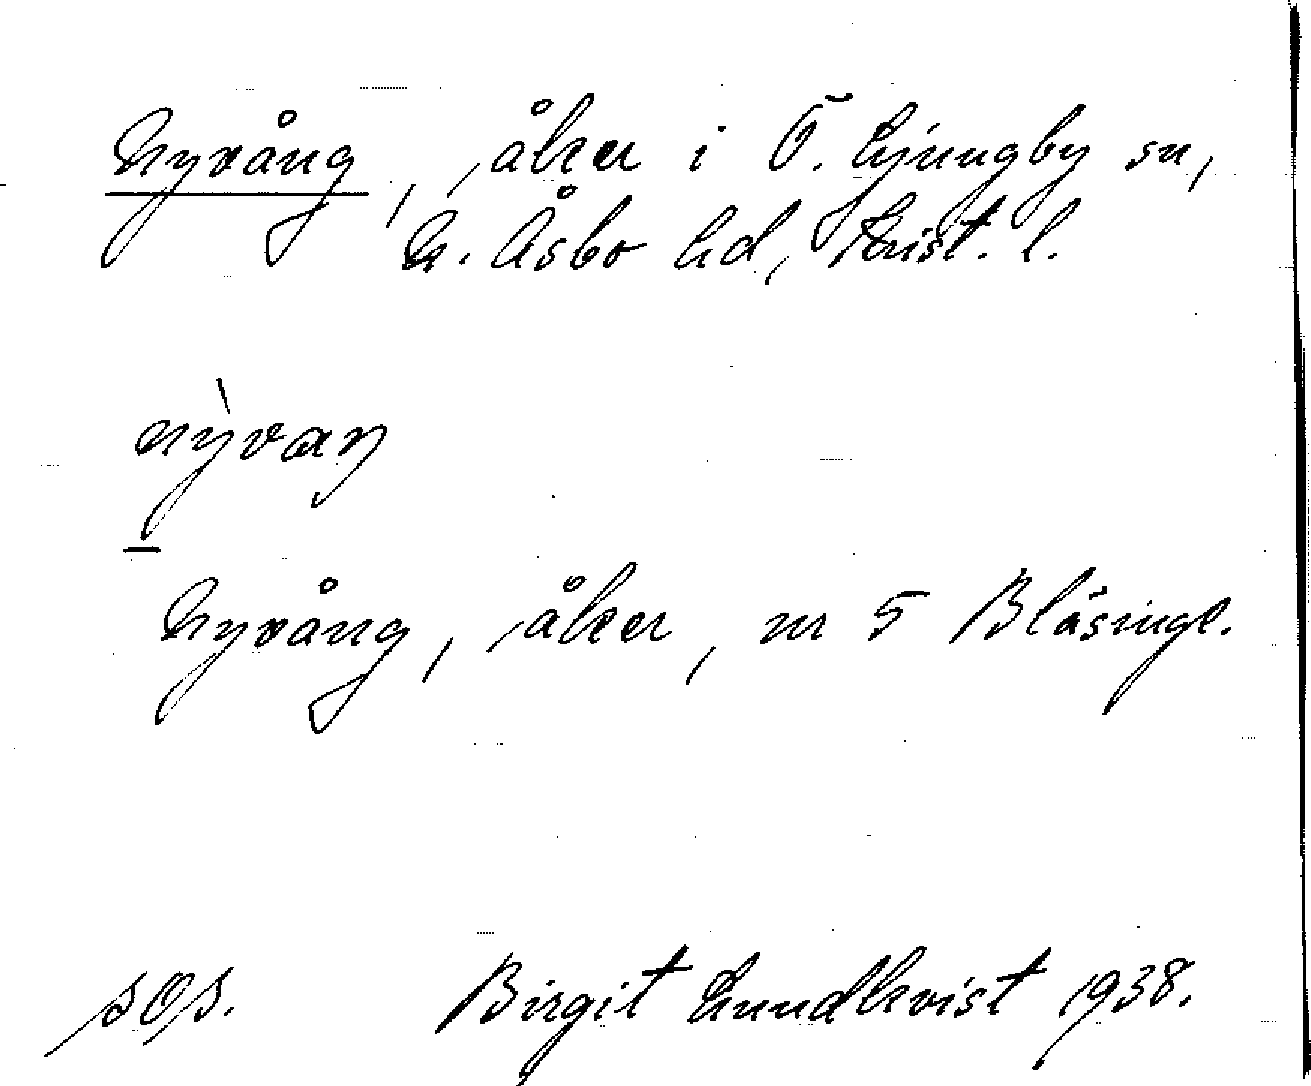 Nyvång, åker i Ö. Ljungby sn,
N. Åsbo hd, Krist. l.
nỳvaŋ
Nyvång, åker, nr 5 Blåsingl.
sOs. Birgit Lundkvist 1938.